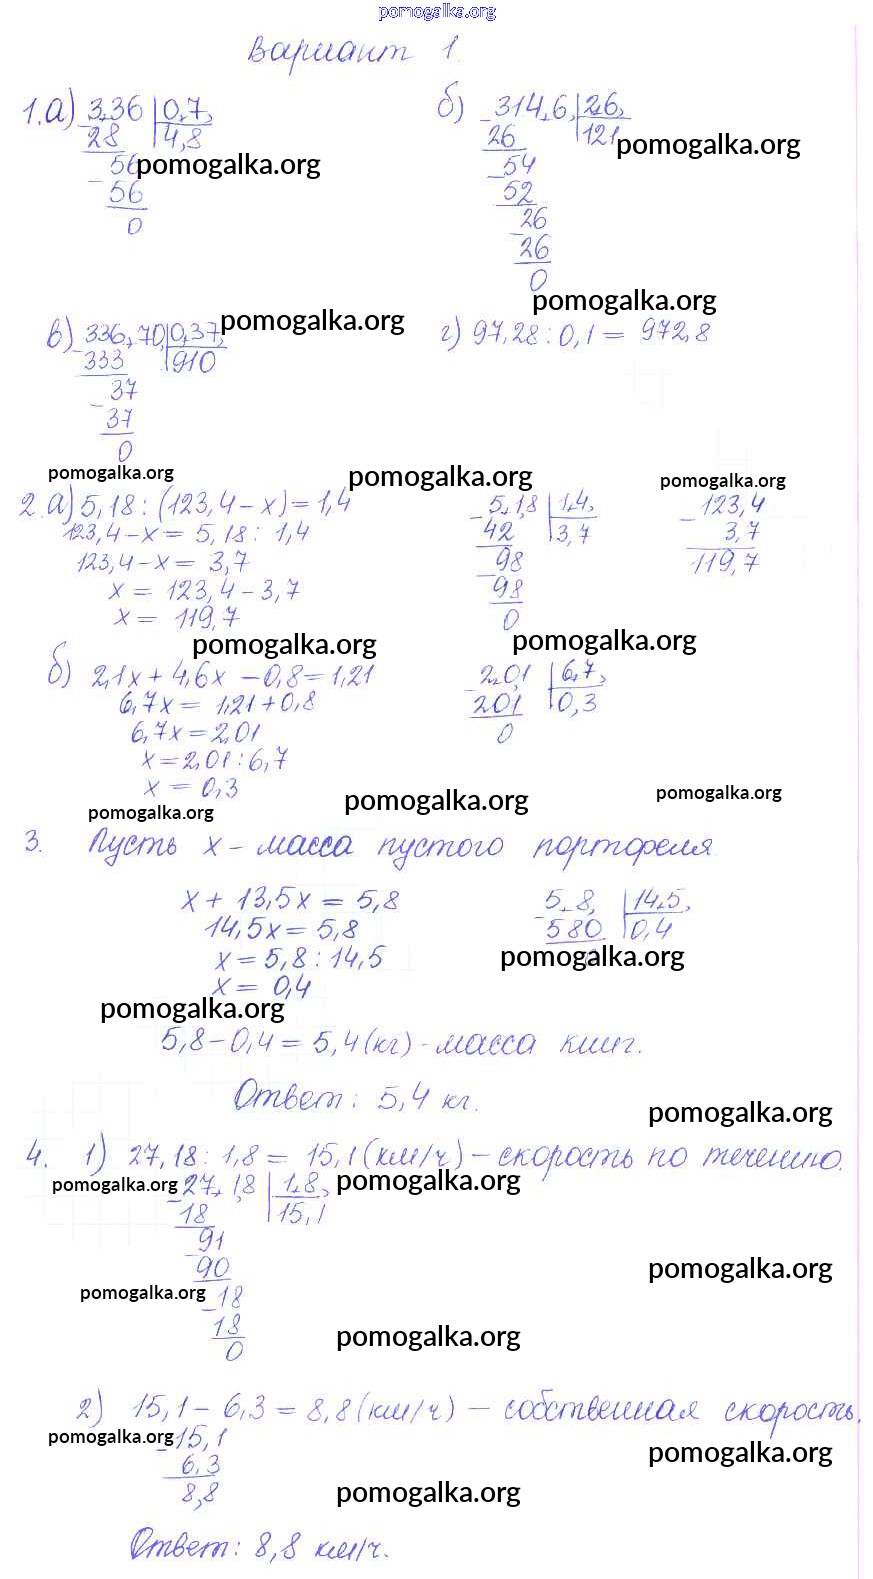 pomogalka.org
Вариант 1.
1.а) 3,36 | 0,7
28 | 4,8
56 pomogalka.org
56
0
б) 314,6 | 2,6
26 | 121 pomogalka.org
54
52
26
26
0
pomogalka.org
в) 336,70 | 0,37 pomogalka.org
333 | 910
37
37
0
г) 97,28 : 0,1 = 972,8
pomogalka.org pomogalka.org pomogalka.org
2.а) 5,18 : (123,4 - x) = 1,4
123,4 - x = 5,18 : 1,4
123,4 - x = 3,7
x = 123,4 - 3,7
x = 119,7
5,18 | 1,4
42 | 3,7
98
98
0
123,4
- 3,7
119,7
pomogalka.org pomogalka.org
б) 2,1x + 4,6x - 0,8 = 1,21
6,7x = 1,21 + 0,8
6,7x = 2,01
x = 2,01 : 6,7
x = 0,3
2,01 | 6,7
201 | 0,3
0
pomogalka.org pomogalka.org pomogalka.org
3. Пусть x - масса пустого портфеля
x + 13,5x = 5,8
14,5x = 5,8
x = 5,8 : 14,5
x = 0,4
5,8 | 14,5
580 | 0,4
pomogalka.org
pomogalka.org
5,8 - 0,4 = 5,4 (кг) - масса книг.
Ответ: 5,4 кг.
pomogalka.org
4. 1) 27,18 : 1,8 = 15,1 (км/ч) - скорость по течению.
pomogalka.org 27,18 | 1,8 pomogalka.org
18 | 15,1
91
90
pomogalka.org
pomogalka.org 18
18
0
pomogalka.org
2) 15,1 - 6,3 = 8,8 (км/ч) - собственная скорость.
pomogalka.org 15,1
6,3
8,8
pomogalka.org
pomogalka.org
Ответ: 8,8 км/ч.